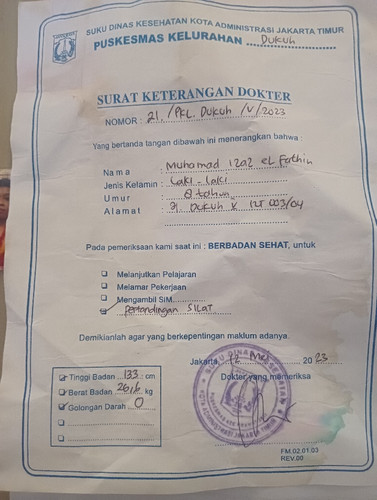 SUKU DINAS KESEHATAN KOTA ADMINISTRASI JAKARTA TIMUR
PUSKESMAS KELURAHAN Dukuh
SURAT KETERANGAN DOKTER
NOMOR : 21./PKL. DUKUH /V/2023
Yang bertanda tangan dibawah ini menerangkan bahwa :
Nama : Muhamad Izaz el Fathin
Jenis Kelamin : Laki - Laki
Umur : 8 tahun
Alamat : Jl Dukuh V RT 003/04
Pada pemeriksaan kami saat ini : BERBADAN SEHAT, untuk
Melanjutkan Pelajaran
Melamar Pekerjaan
Mengambil SIM
Pertandingan SILAT
Demikianlah agar yang berkepentingan maklum adanya.
Jakarta, 12 Mei 2023
Dokter yang memeriksa
Tinggi Badan 133 cm
Berat Badan 26,6 kg
Golongan Darah O
SUKU DINAS KESEHATAN
FM.02.01.03
REV.00